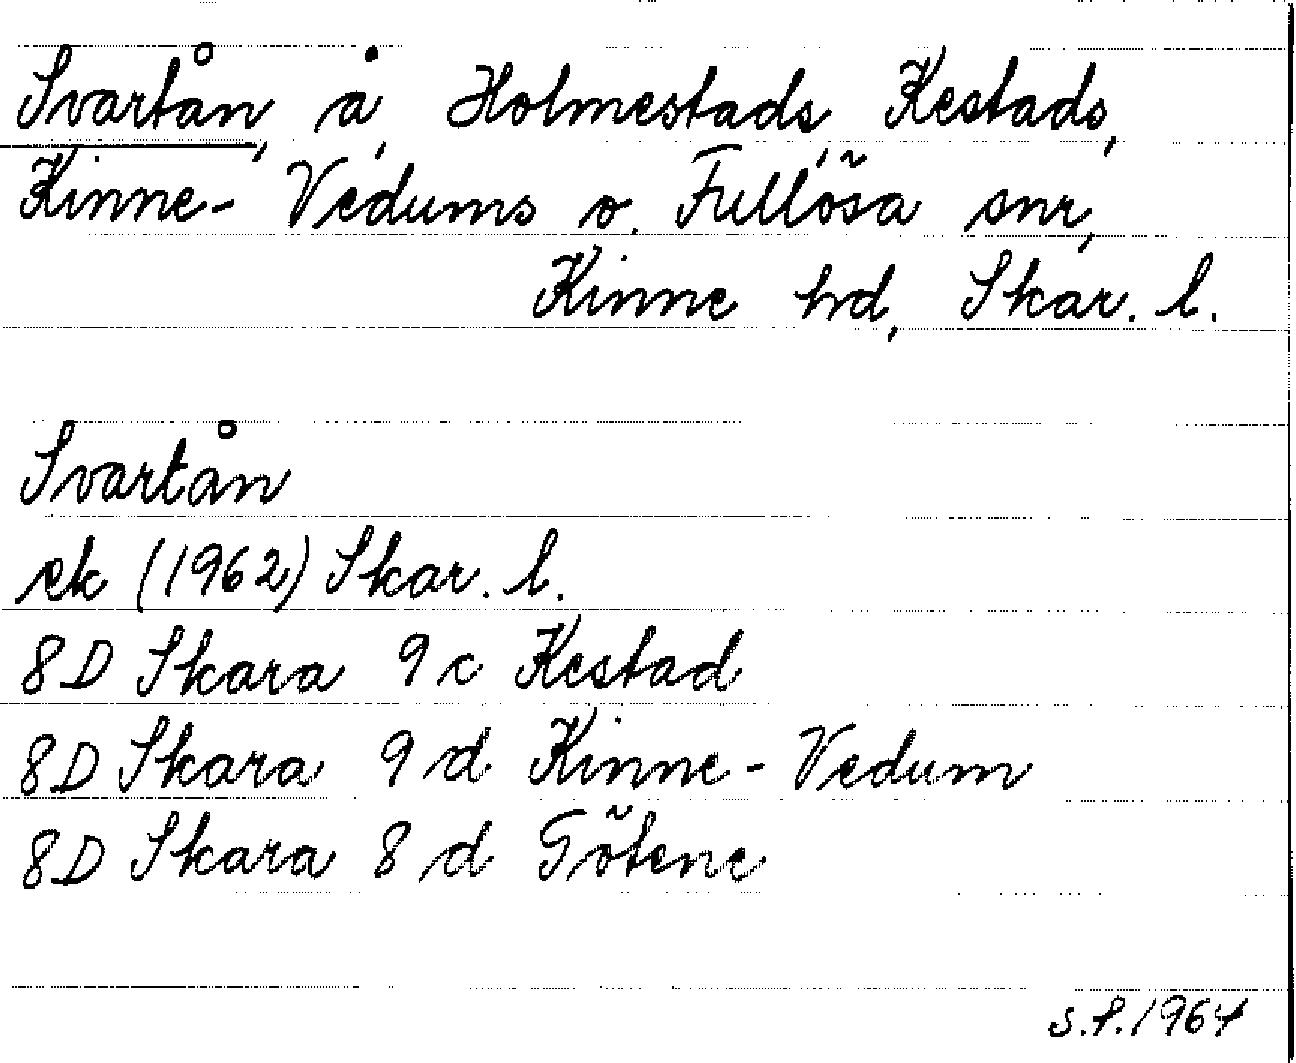 Svartån, å, Holmestads, Kestads,
Kinne-Vedums o. Fullösa snr,
Kinne hd, Skar. l.
Svartån
ek (1962) Skar. l.
8D Skara 9c Kestad
8D Skara 9d Kinne-Vedum
8D Skara 8d Götene
S.P. 1964